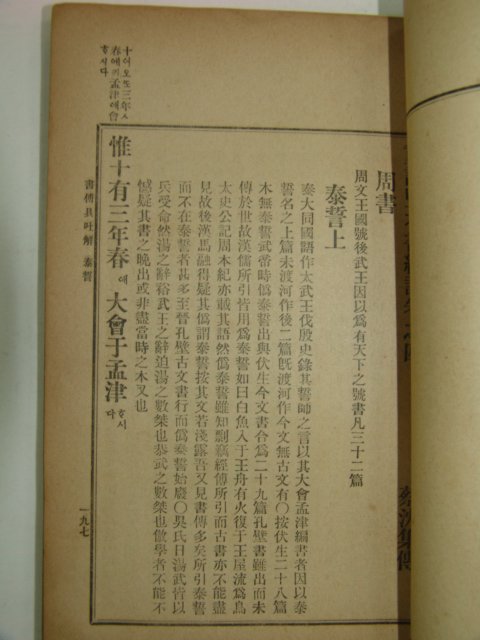 周書
周文王國號後武王因以爲有天下之號書凡三十二篇
泰誓上
泰大同國語作太武王伐殷史錄其誓師之言以其大會孟津編書者因以泰
誓名之上篇未渡河作後二篇旣渡河作今文無古文有○按伏生二十八篇
本無泰誓武帝時僞泰誓出與伏生今文書合爲二十九篇孔壁書雖出而未
傳於世故漢儒所引皆用僞泰誓如曰白魚入于王舟有火復于王屋流爲烏
太史公記周本紀亦載其語然僞泰誓雖知剽竊經傳所引而古書亦不能盡
見故後漢馬融得疑其僞謂泰誓按其文若淺露吾又見書傳多矣所引泰誓
而不在泰誓者甚多至晉孔壁古文書行而僞泰誓始廢○吳氏曰湯武皆以
兵受命然湯之辭裕武王之辭迫湯之數桀也恭武之數桀也傲學者不能不
憾疑其書之晚出或非盡當時之本文也
惟十有三年春애 大會于孟津하시다
十이오또三年ㅅ
春애키孟津애會
하시다
書傳具吐解 泰誓
一九七